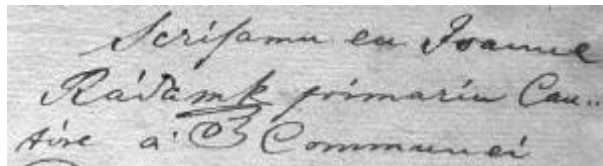 Scrisamu eu Joanne
Rádamk primariu Can..
tire a Communei